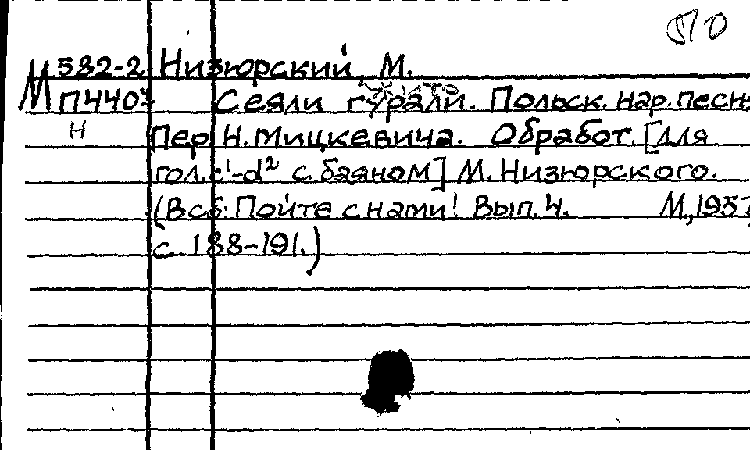 М 582-2 Низюрский, М.
М П440? Сеяли гурали. Польск. нар. песня
Н Пер Н. Мицкевича. Обработ. [для
гол. c¹-d² с баяном] М. Низюрского.
(В сб: Пойте с нами! Вып. 4. М, 1957,
с. 188-191.)